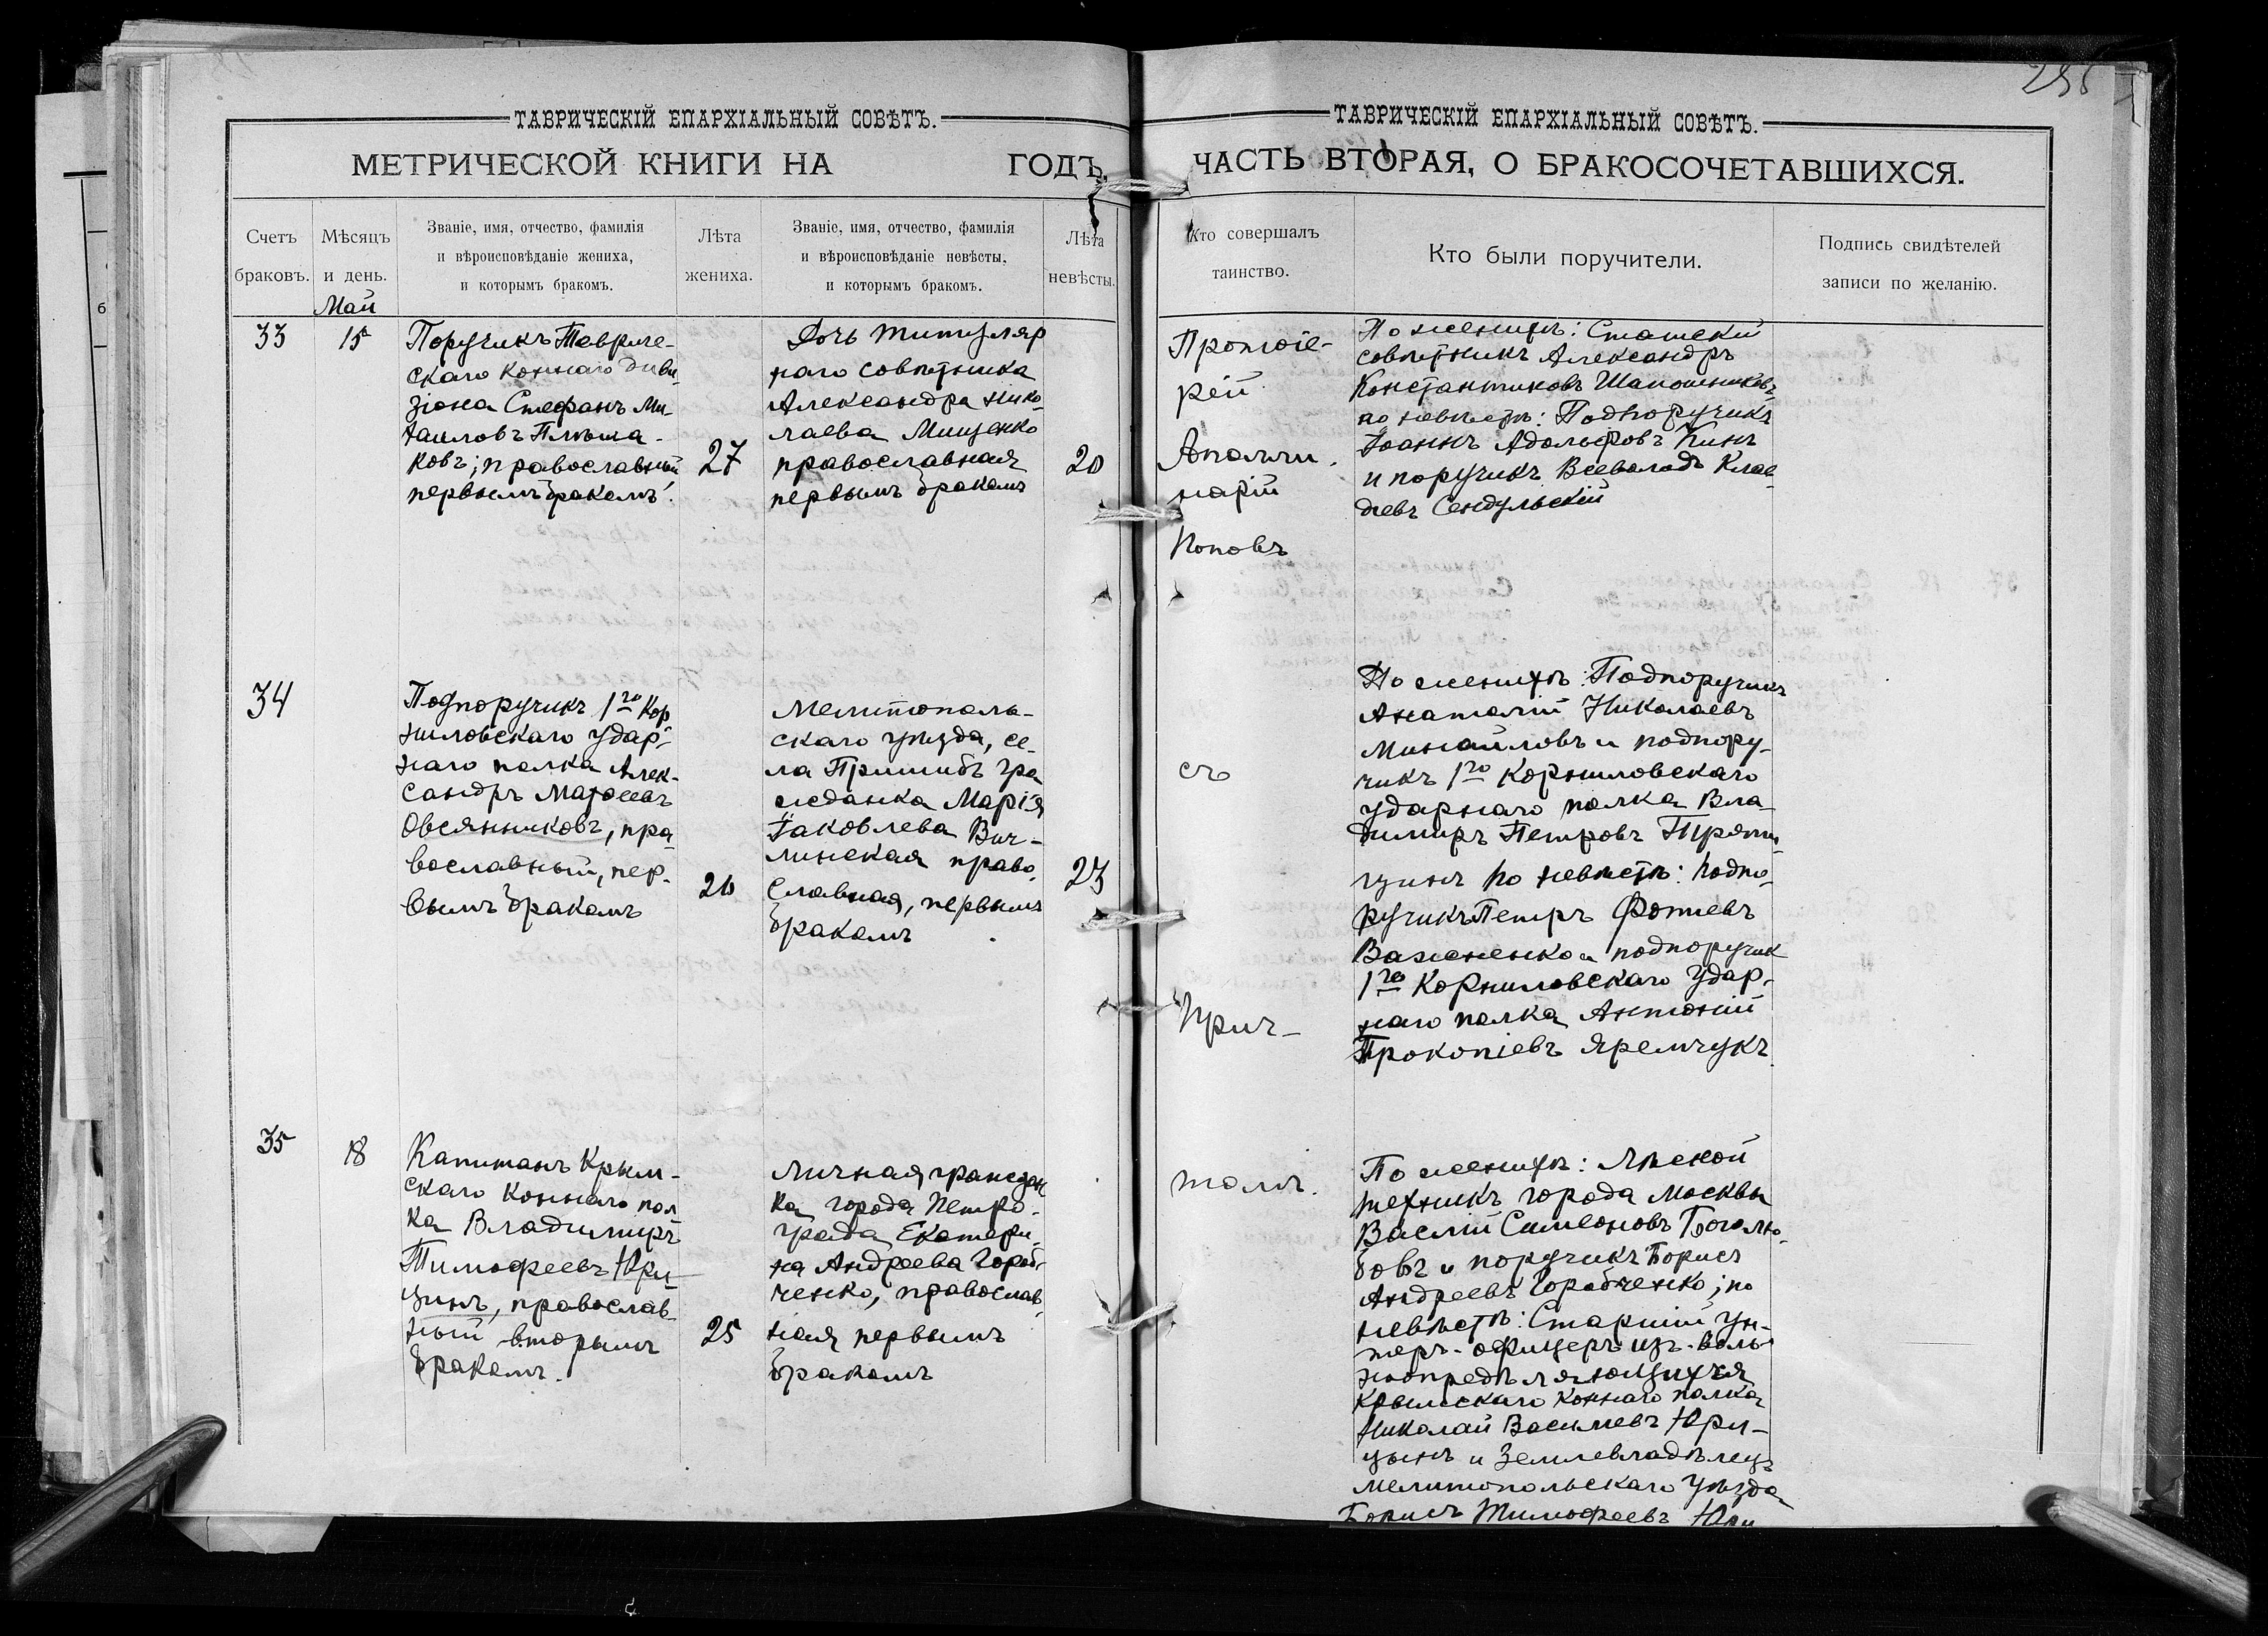 ТАВРИЧЕСКІЙ ЕПАРХІАЛЬНЫЙ СОВѢТЪ.
МЕТРИЧЕСКОЙ КНИГИ НА ГОДЪ,
Счетъ браковъ.
Мѣсяцъ и день.
Званіе, имя, отчество, фамилія
и вѣроисповѣданіе жениха,
и которымъ бракомъ.
Лѣта жениха.
Званіе, имя, отчество, фамилія
и вѣроисповѣданіе невѣсты,
и которымъ бракомъ.
Лѣта невѣсты.
Май
33
15
Поручикъ Тавриче-
скаго коннаго диви-
зіона Стефанъ Ми-
хаиловъ Плѣша-
ковъ; православный
первымъ бракомъ.
27
Дочь титуляр
наго совѣтника
Александра Нико-
лаева Мищенко
православная
первымъ бракомъ
20
34
Подпоручикъ 1го Кор
ниловскаго удар-
наго полка Алек-
сандръ Матѳеевъ
Овсянниковъ, пра
вославный, пер-
вымъ бракомъ
26
Мелитополь-
скаго уѣзда, се-
ла Пришибъ гра
жданка Марія
Іаковлева Вич-
линская право-
славная, первымъ
бракомъ
23
35
18
Капитанъ Крым-
скаго Коннаго пол
ка Владимиръ
Тимофеевъ Юри
цинъ, православ
ный вторымъ
бракомъ.
25
Личная граждан
ка города Петро-
града Екатери-
на Андреева Гороб-
ченко, православ-
ная первымъ
бракомъ
ТАВРИЧЕСКІЙ ЕПАРХІАЛЬНЫЙ СОВѢТЪ.
ЧАСТЬ ВТОРАЯ, О БРАКОСОЧЕТАВШИХСЯ.
Кто совершалъ
таинство.
Кто были поручители.
Подпись свидѣтелей
записи по желанію.
Протоіе-
рей
Аполли-
нарій
Поповъ
съ
Прич-
томъ.
По женихѣ: Статскій
совѣтникъ Александръ
Константиновъ Шапошниковъ,
по невѣстѣ: Подпоручикъ
Іоаннъ Адольфовъ Кинъ
и поручикъ Всеволодъ Клав
діевъ Сендульскій
По женихѣ: Подпоручикъ
Анатолій Николаевъ
Михайловъ и подпору-
чикъ 1го Корниловскаго
ударнаго полка Вла
димиръ Петровъ
по невѣстѣ: Подпо-
ручикъ Петръ Фотіевъ
Важненко и подпоручик
1го Корниловскаго удар-
наго полка Антоній
Прокопіевъ Яремчукъ.
По женихѣ: Лѣсной
техникъ города Москвы
Василій Симеоновъ Боголю-
бовъ и поручикъ Борисъ
Андреевъ Горобченко; по
невѣстѣ: Старшій ун-
теръ-офицеръ изъ воль-
ноопредѣляющихся
Крымскаго Коннаго полка
Николай Васильевъ Юри-
цынъ и землевладѣлецъ
Мелитопольскаго уѣзда
Борисъ Тимофеевъ Юри